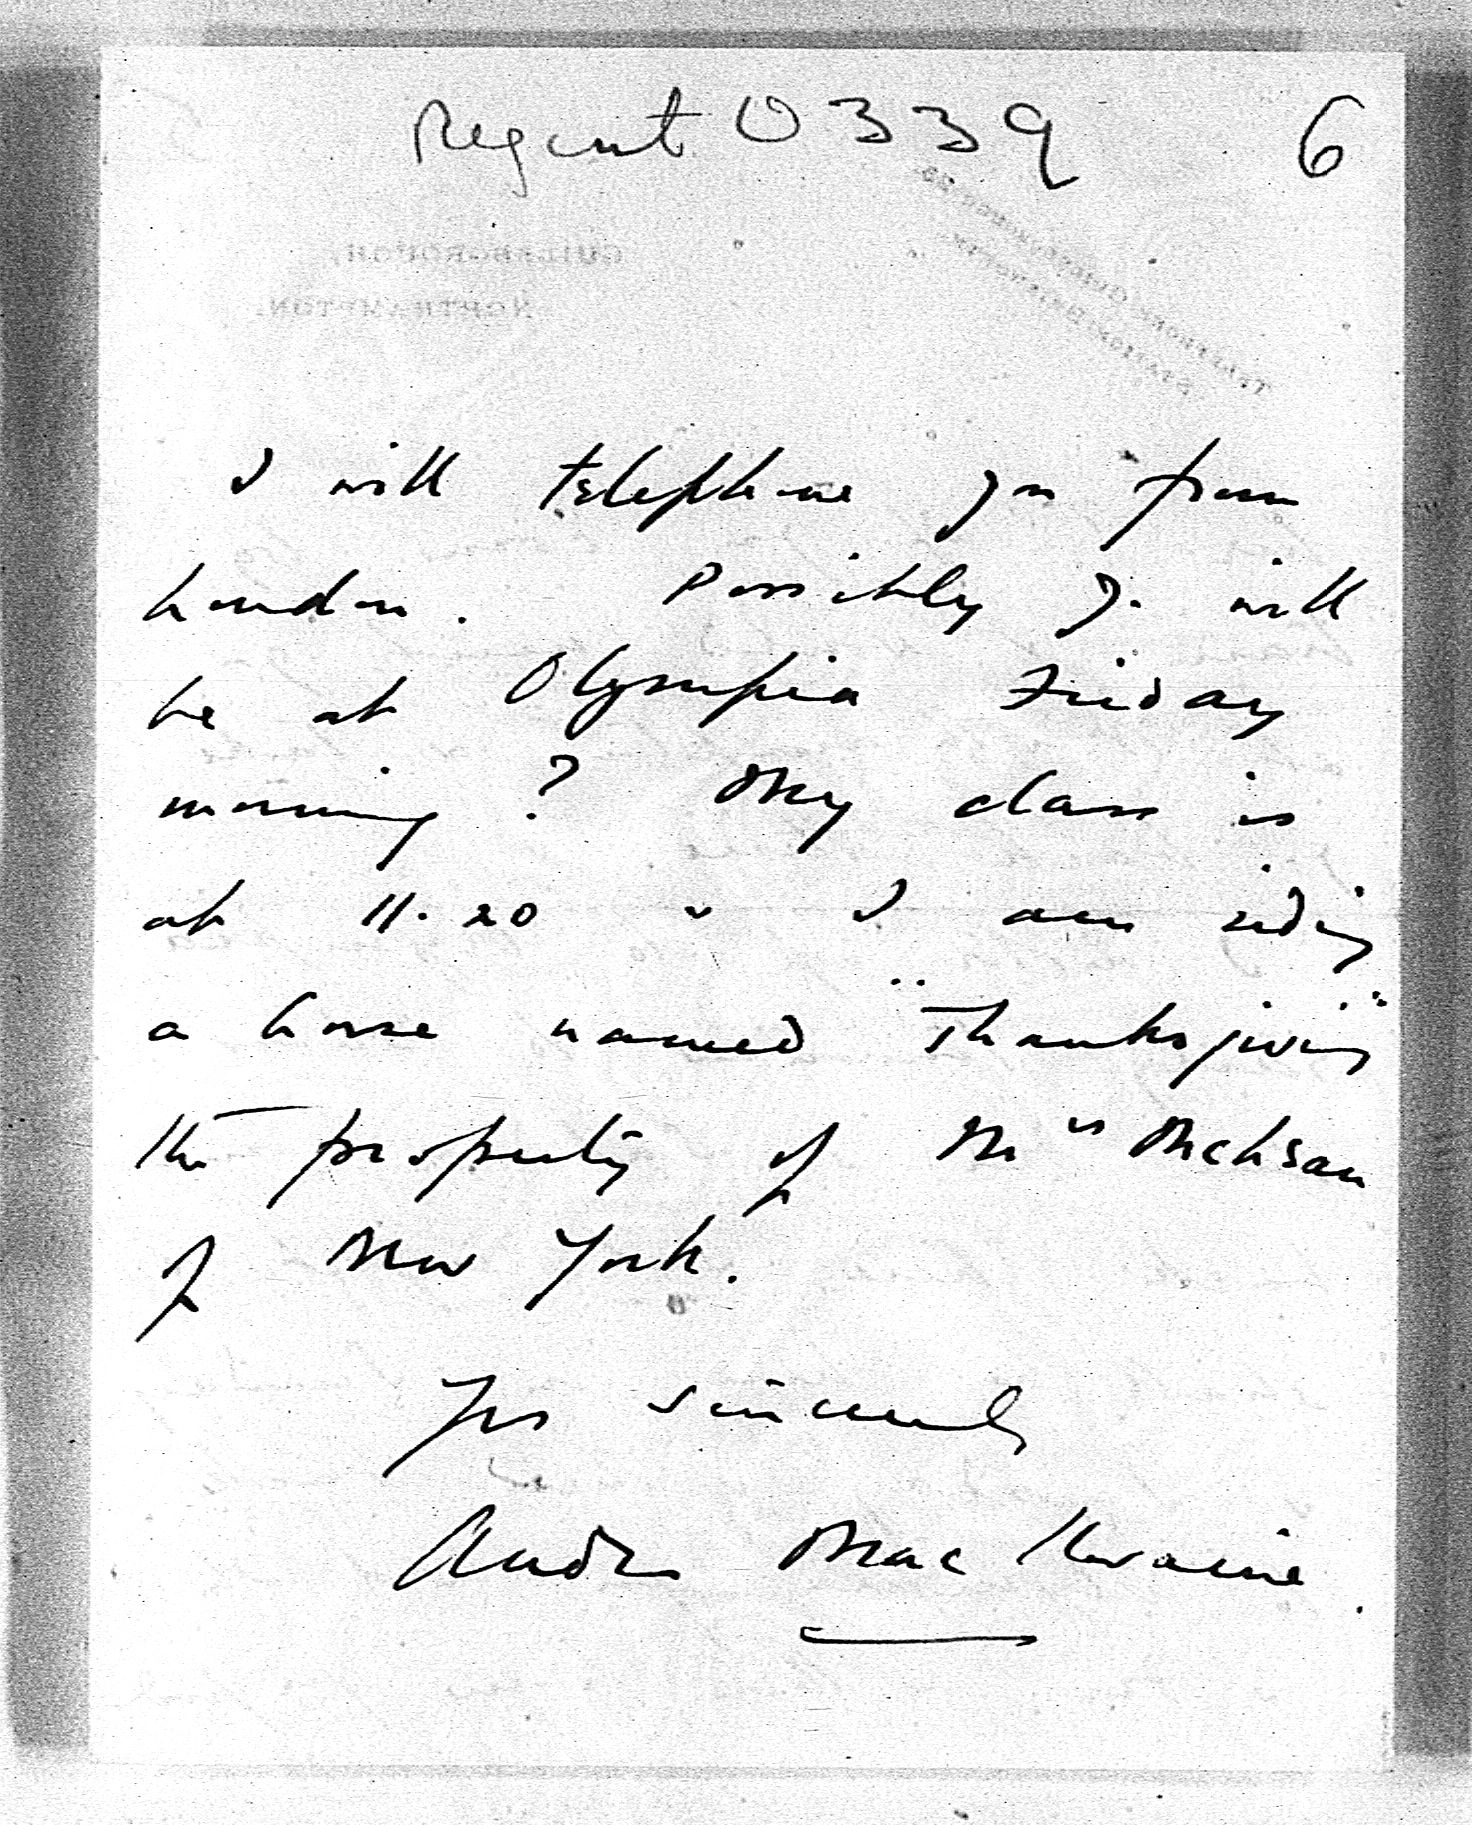 Regent 0339 6
GUILSBOROUGH,
NORTHAMPTON.
TELEPHONE: GUILSBOROUGH 25.
STATION: BRIXWORTH.
I will telephone you from
London. Possibly you will
be at Olympia Friday
morning? My class is
at 11.20 & I am riding
a horse named "Thanksgiving"
the property of Mrs
of New York.
Yrs sincerely
Mac Ilwaine